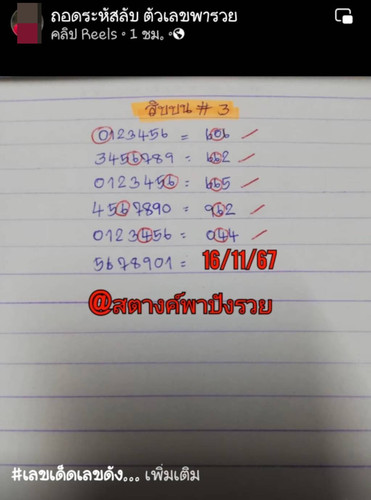 ถอดระหัสลับ ตัวเลขพารวย
คลิป Reels • 1 ชม. •
สิบบน # 3
0123456 = 606
3456789 = 662
0123456 = 665
4567890 = 962
0123456 = 044
5678901 = 16/11/67
@สตางค์พาปังรวย
#เลขเด็ดเลขดัง... เพิ่มเติม